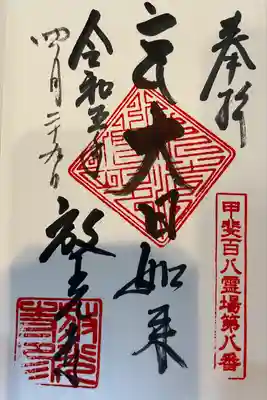 奉拝
甲斐百八霊場第八番
大日如来
放光寺
令和五年
四月二十九日